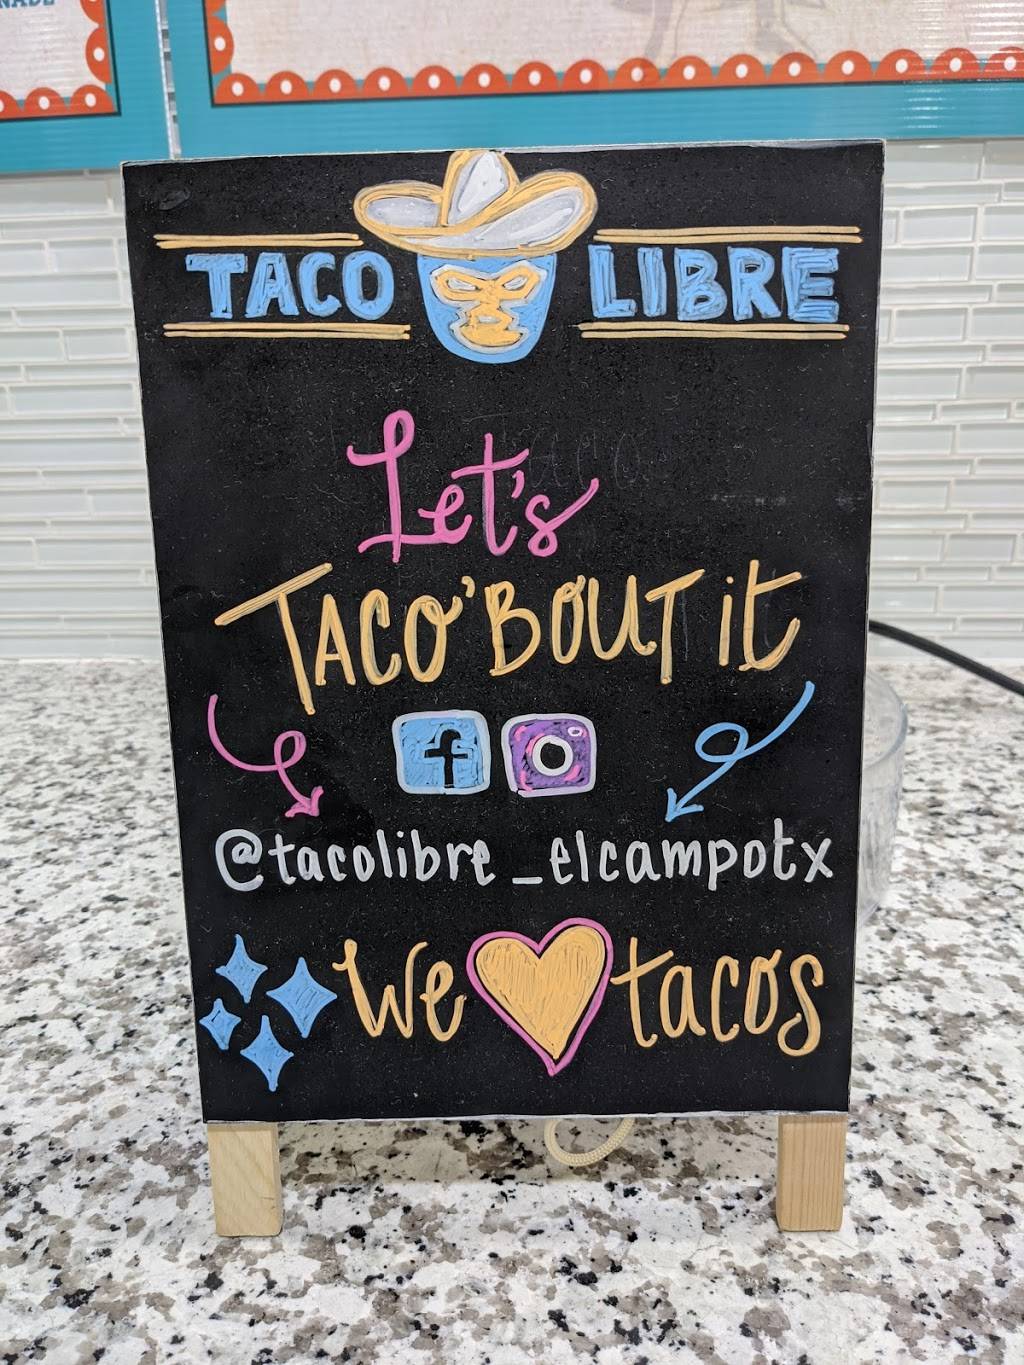 NADE
TACO LIBRE
Let's
TACO'BOUT it
f
@tacolibre_elcampotx
We tacos